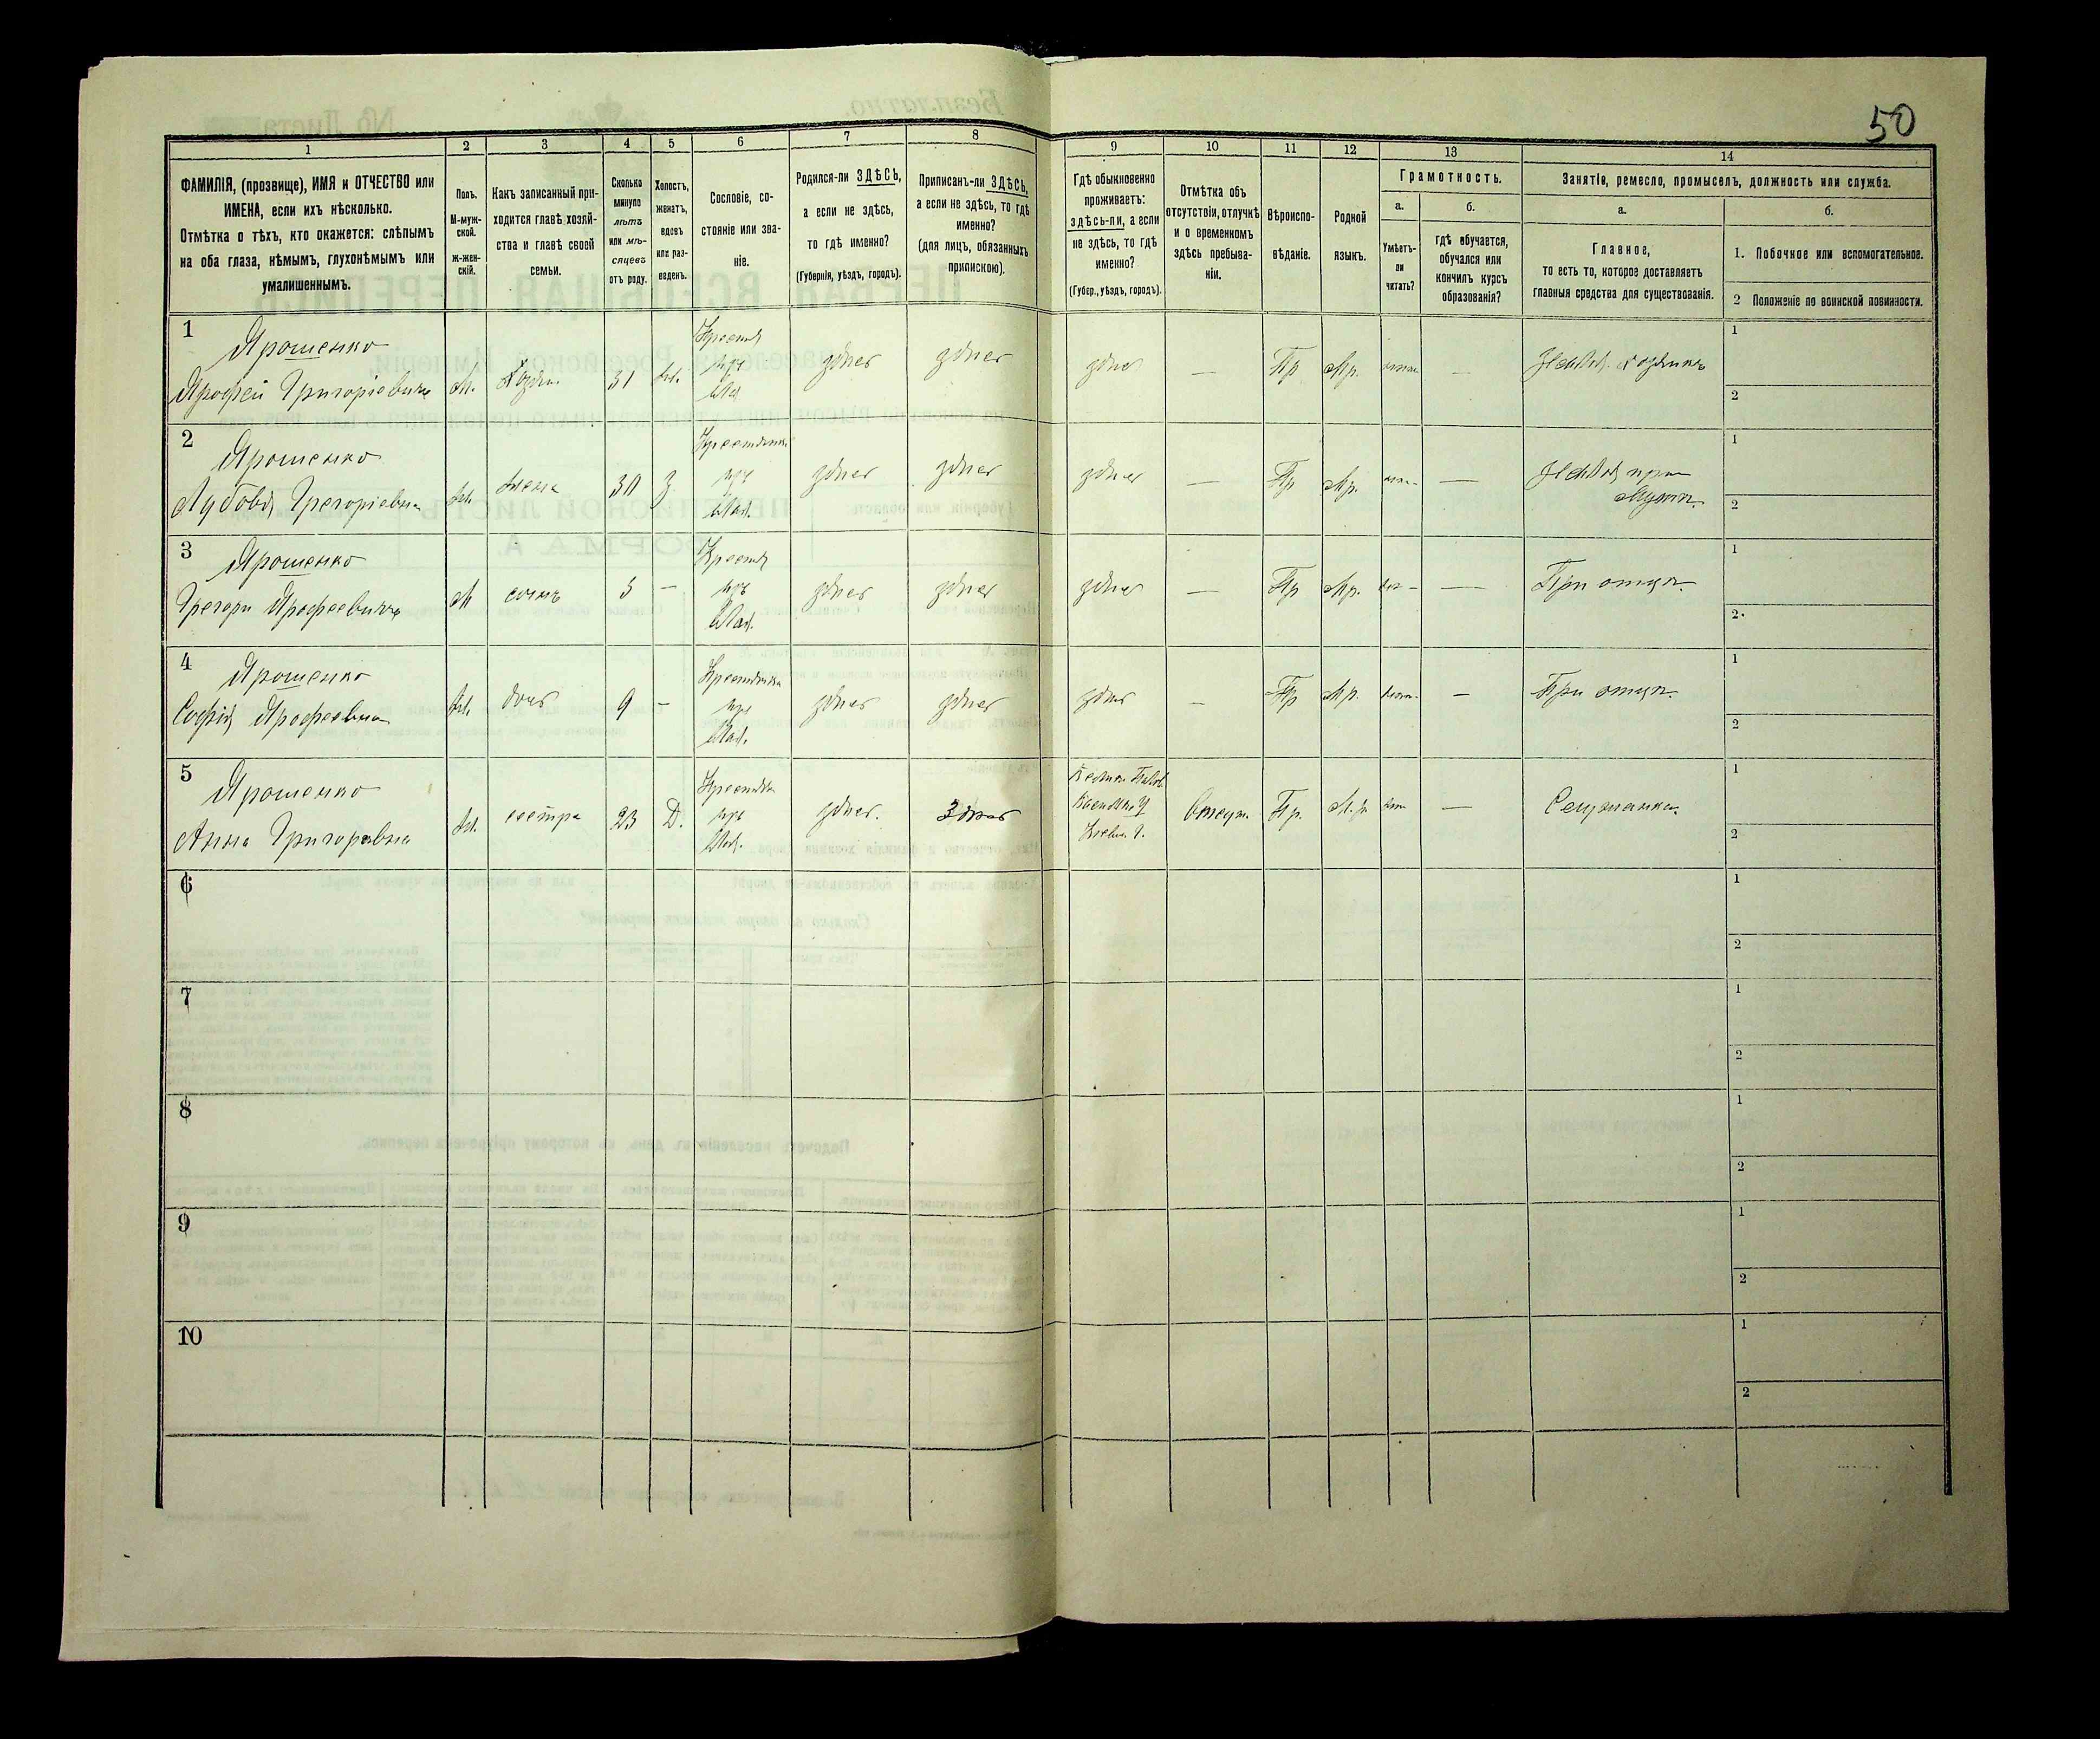 50
1
2
3
4
5
6
7
8
9
10
11
12
13
14
ФАМИЛІЯ, (прозвище), ИМЯ и ОТЧЕСТВО или
ИМЕНА, если ихъ нѣсколько.
Отмѣтка о тѣхъ, кто окажется: слѣпымъ
на оба глаза, нѣмымъ, глухонѣмымъ или
умалишеннымъ.
Полъ.
М-муж-
ской.
ж-жен-
скій.
Какъ записанный при-
ходится главѣ хозяй-
ства и главѣ своей
семьи.
Сколько
минуло
лѣтъ
или мѣ-
сяцевъ
отъ роду.
Холостъ,
женатъ,
вдовъ
или раз-
веденъ.
Сословіе, со-
стояніе или зва-
ніе.
Родился-ли ЗДѢСЬ,
а если не здѣсь,
то гдѣ именно?
(Губернія, уѣздъ, городъ).
Приписанъ-ли ЗДѢСЬ,
а если не здѣсь, то гдѣ
именно?
(для лицъ, обязанныхъ
припискою).
Гдѣ обыкновенно
проживаетъ:
здѣсь-ли, а если
не здѣсь, то гдѣ
именно?
(Губер., уѣздъ, городъ).
Отмѣтка объ
отсутствіи, отлучкѣ
и о временномъ
здѣсь пребыва-
ніи.
Вѣроиспо-
вѣданіе.
Родной
языкъ.
Грамотность.
а.
Умѣетъ-
ли
читать?
б.
гдѣ обучается,
обучался или
кончилъ курсъ
образованія?
Занятіе, ремесло, промыселъ, должность или служба.
а.
Главное,
то есть то, которое доставляетъ
главныя средства для существованія.
б.
1. Побочное или вспомогательное.
2 Положеніе по воинской повинности.
1
Ярошенко
Ярофей Григоріевичъ
М.
31
здѣсь
здѣсь
здѣсь
—
Пр
Мр.
—
1
2
2
Ярошенко
Любовь Григоріевна
ж.
жена
30
з.
здѣсь
здѣсь
здѣсь
—
Пр
Мр.
—
при
1
2
3
Ярошенко
Григори Ярофеевичъ
М
сынъ
—
здѣсь
здѣсь
здѣсь
—
Пр
Мр.
—
При отцѣ
1
2
4
Ярошенко
Софія Ярофеевна
ж.
дочь
9
—
здѣсь
здѣсь
здѣсь
—
Пр
Мр.
—
При отцѣ
1
2
5
Ярошенко
Анна Григорьевна
ж.
сестра
23
Д.
здѣсь.
здѣсь
Отсут.
Пр.
М.р.
—
1
2
6
1
2
7
1
2
8
1
2
9
1
2
10
1
2